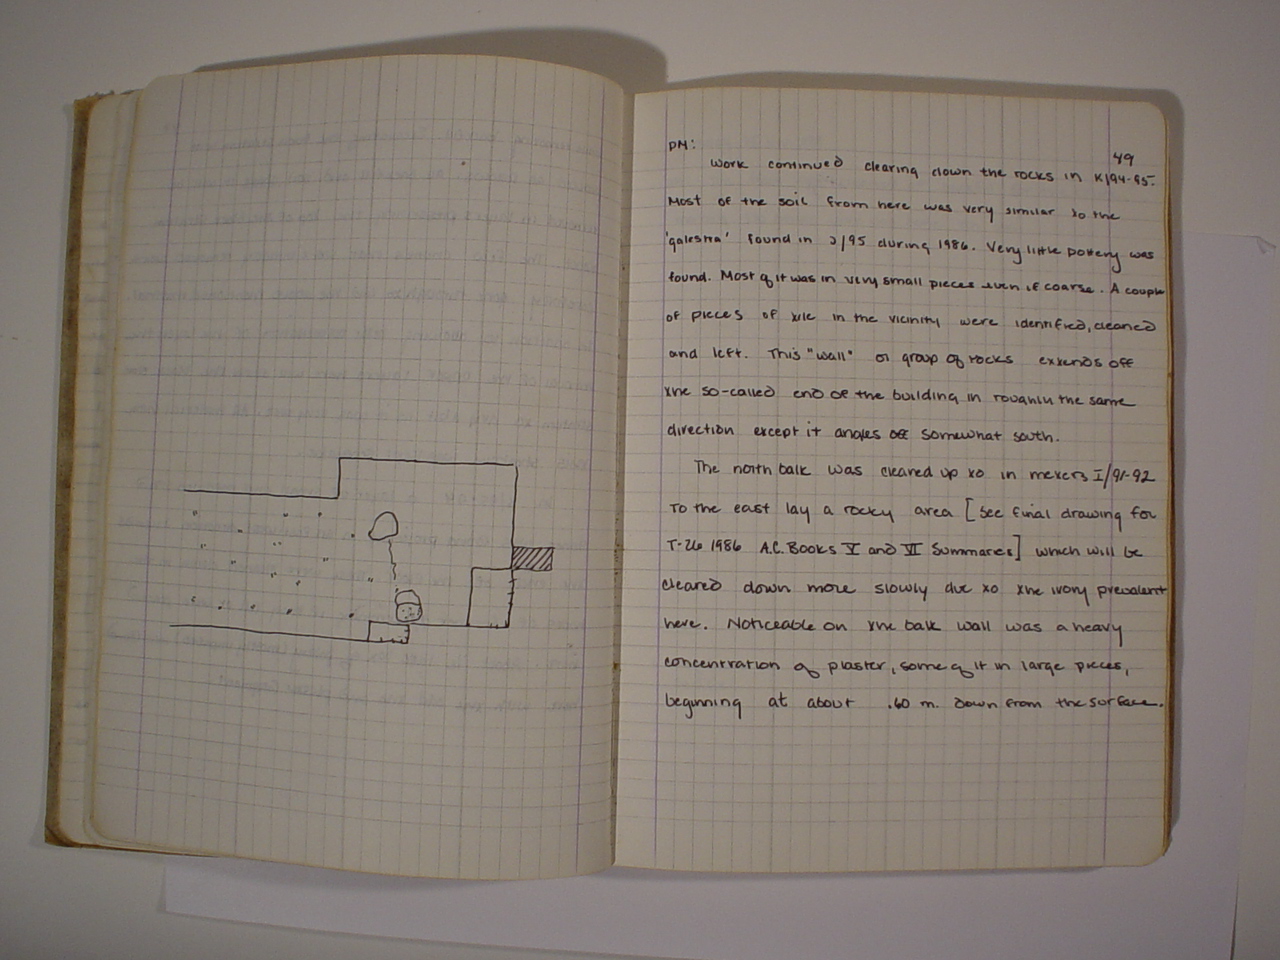 49
PM:
Work continued clearing down the rocks in K/94-95.
Most of the soil from here was very similar to the
'galestra' found in J/95 during 1986. Very little pottery was
found. Most of it was in very small pieces even if coarse. A couple
of pieces of tile in the vicinity were identified, cleaned
and left. This "wall" or group of rocks extends off
the so-called end of the building in roughly the same
direction except it angles off somewhat south.
The north balk was cleared up to in meters I/91-92
To the east lay a rocky area [See final drawing for
T-26 1986 A.C. Books V and VI Summaries] which will be
cleared down more slowly due to the ivory prevalent
here. Noticeable on the balk wall was a heavy
concentration of plaster, some of it in large pieces,
beginning at about .60 m. down from the surface.